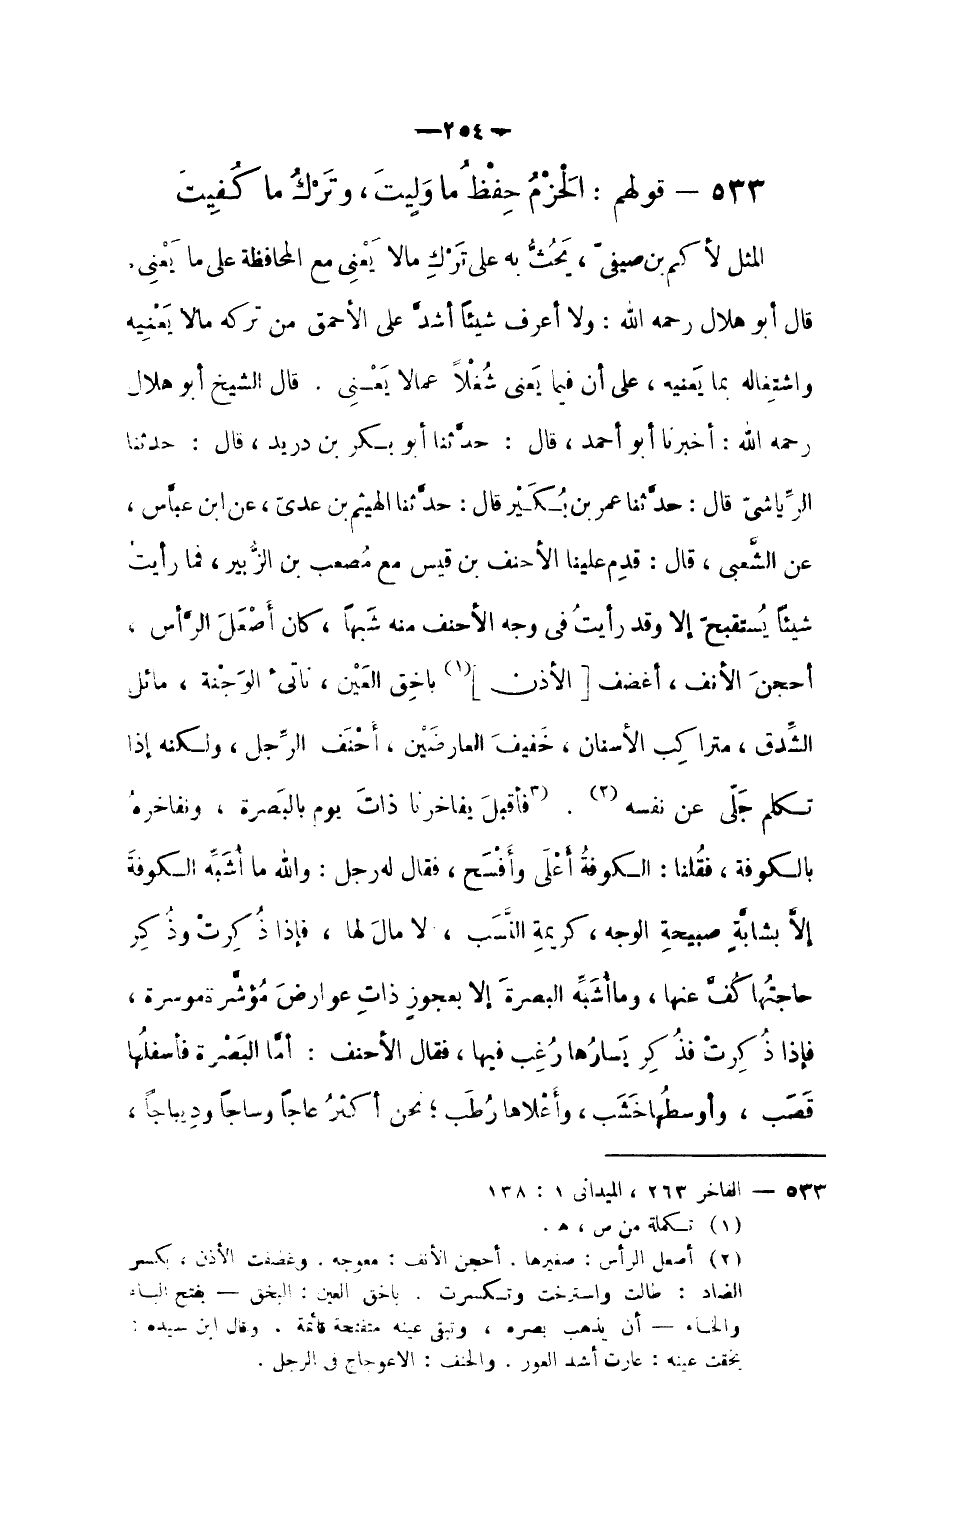 — ٢٥٤ —
٥٣٣ — قولهم : الحَزْمُ حِفْظُ ما وَلِيتَ ، وتَرْكُ ما كُفِيتَ
المثل لأكثم بن صيفىّ ، يَحُثُّ به على تَرْكِ مالا يَعْنِى مع المحافظة على ما يَعْنِى .
قال أبو هلال رحمه الله : ولا أعرف شيئًا أشدّ على الأحمق من تركه مالا يَعْنِيه
واشتغاله بما يَعنيه ، على أن فيما يَعنى شُغْلاً عمالا يَعْنِى . قال الشيخ أبو هلال
رحمه الله : أخبرنا أبو أحمد ، قال : حدّثنا أبو بكر بن دريد ، قال : حدثنا
الرِّياشىّ قال : حدَّثنا عمر بن بُكَيْر قال : حدَّثنا الهيثم بن عدىّ ، عن ابن عبَّاس ،
عن الشَّعبى ، قال : قدِم علينا الأحنف بن قيس مع مُصعب بن الزُّبير ، فما رأيتُ
شيئًا يُستقبحَ إلا وقد رأيتُ فى وجه الأحنف منه شَبهاً ، كان أَصْعَلَ الرَّأس ،
أحجنَ الأنف ، أغضف [ الأذن ](١) باخِق العَيْن ، ناتىء الوَجْنة ، مائل
الشِّدق ، متراكِب الأسنان ، خَفيفَ العارضَيْن ، أَحْنَف الرِّجل ، ولكنه إذا
تكلم جَلّى عن نفسه (٢) . (٣فأقبلَ يفاخرنا ذاتَ يوم بالبَصرة ، ونفاخرهُ
بالكوفة ، فقُلنا : الكوفةُ أَعْلَى وأَفْسَح ، فقال له رجل : والله ما أُشَبِّه الكوفةَ
إلاَّ بشابَّةٍ صبيحةِ الوجه ، كريمةِ النَّسَب ، لا مالَ لها ، فإذا ذُكِرتْ وذُكِر
حاجتُها كُفَّ عنها ، وماأُشَبِّه البصرةَ إلا بعجوزٍ ذاتِ عوارضَ مُؤشَّرة موسرة ،
فإذا ذُكِرتْ فذُكِر يَسارُها رُغِب فيها ، فقال الأحنف : أمَّا البَصْرة فأسفلُها
قَصَب ، وأوسطُها خَشَب ، وأَعْلاها رُطَب ؛ نحن أكثرُ عاجًا وساجًا ودِيباجًا ،
٥٣٣ — الفاخر ٢٦٣ ، الميدانى ١ : ١٣٨
(١) تكملة من ص ، هـ .
(٢) أصعل الرأس : صغيرها . أحجن الأنف : معوجه . وغضفت الأذن ، بكسر
الضاد : طالت واسترخت وتكسرت . باخق العين : البخق — بفتح الباء
والخاء — أن يذهب بصره ، وتبقى عينه متفتحة قائمة . وقال ابن سيده :
بخقت عينه : عارت أشد العور . والحنف : الاعوجاج فى الرجل .